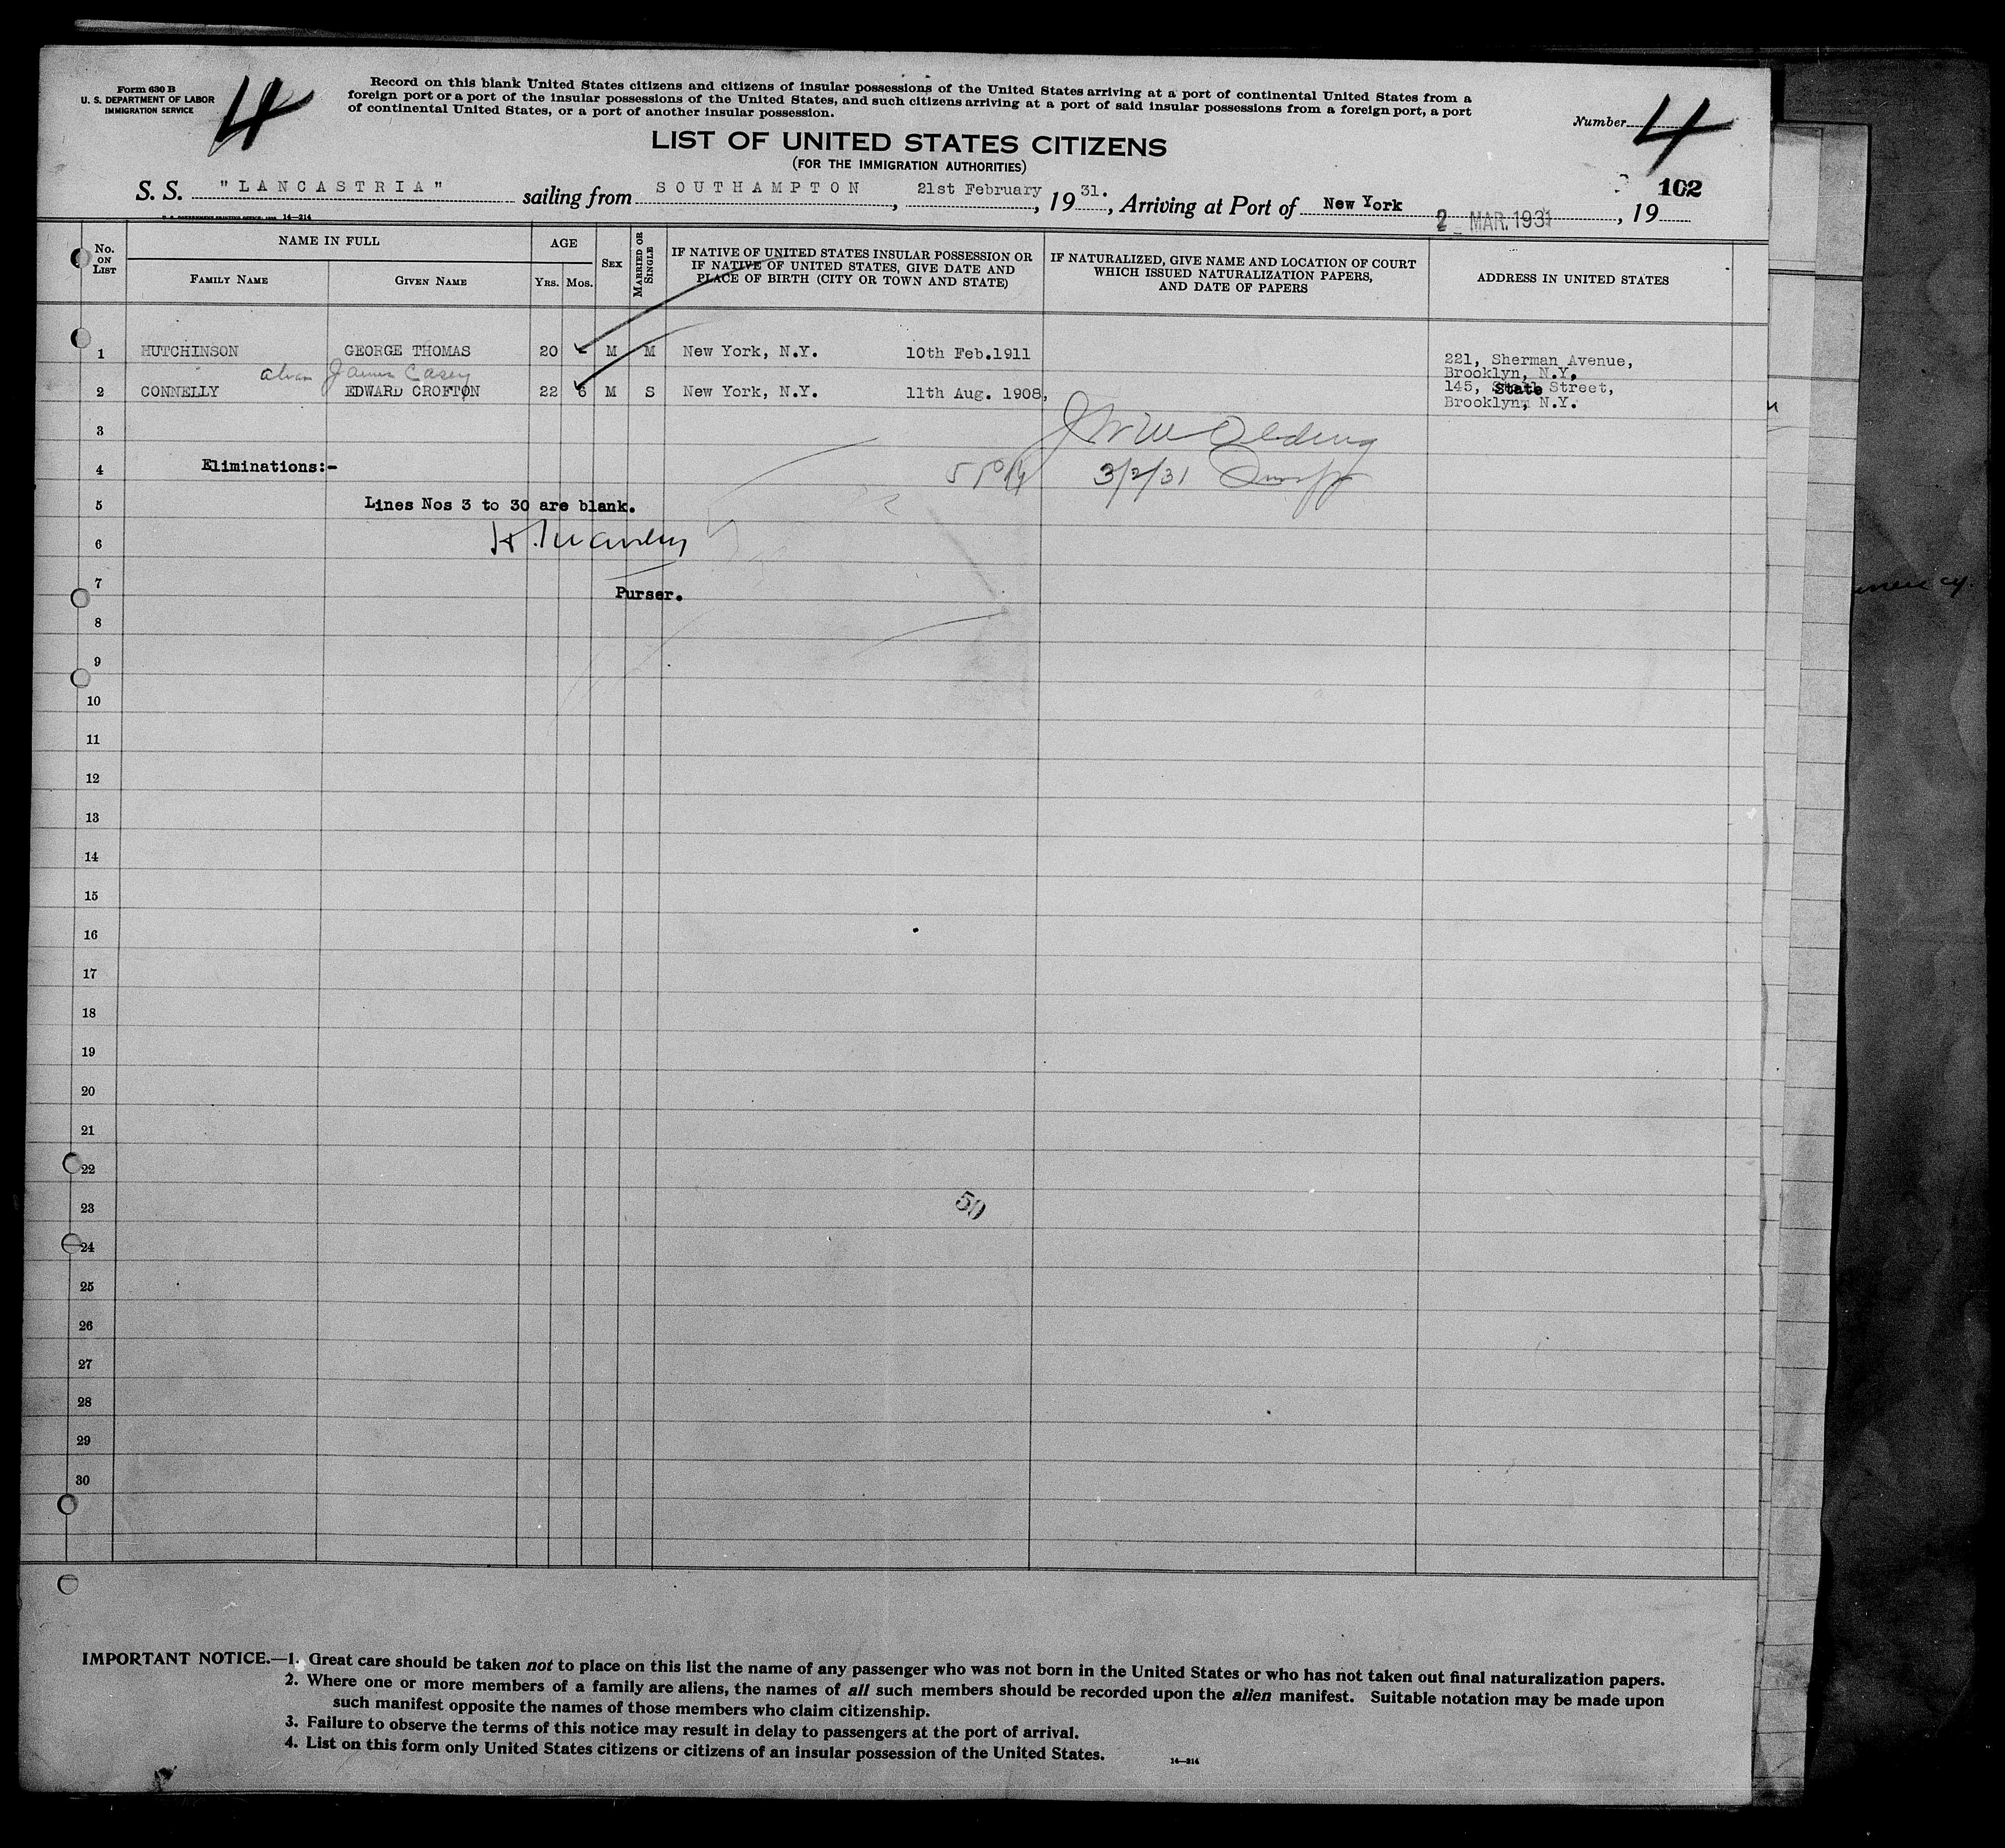 Form 630 B
U. S. DEPARTMENT OF LABOR
IMMIGRATION SERVICE
4
Record on this blank United States citizens and citizens of insular possessions of the United States arriving at a port of continental United States from a
foreign port or a port of the insular possessions of the United States, and such citizens arriving at a port of said insular possessions from a foreign port, a port
of continental United States, or a port of another insular possession.
Number 4
LIST OF UNITED STATES CITIZENS
(FOR THE IMMIGRATION AUTHORITIES)
102
S. S. "LANCASTRIA" sailing from SOUTHAMPTON, 21st February, 1931., Arriving at Port of New York 2 MAR. 1931, 19
14—214
No. ON LIST
NAME IN FULL
FAMILY NAME
GIVEN NAME
AGE
YRS. MOS.
SEX
MARRIED OR SINGLE
IF NATIVE OF UNITED STATES INSULAR POSSESSION OR
IF NATIVE OF UNITED STATES, GIVE DATE AND
PLACE OF BIRTH (CITY OR TOWN AND STATE)
IF NATURALIZED, GIVE NAME AND LOCATION OF COURT
WHICH ISSUED NATURALIZATION PAPERS,
AND DATE OF PAPERS
ADDRESS IN UNITED STATES
1 HUTCHINSON GEORGE THOMAS 20 - M M New York, N.Y. 10th Feb.1911 221, Sherman Avenue,
Brooklyn, N.Y.
alias James Casey
2 CONNELLY EDWARD CROFTON 22 6 M S New York, N.Y. 11th Aug. 1908, 145, State Street,
Brooklyn, N.Y.
3
4 Eliminations:- 3/2/31
5 Lines Nos 3 to 30 are blank.
6
7 Purser.
8
9
10
11
12
13
14
15
16
17
18
19
20
21
22
23
50
24
25
26
27
28
29
30
IMPORTANT NOTICE.—1. Great care should be taken not to place on this list the name of any passenger who was not born in the United States or who has not taken out final naturalization papers.
2. Where one or more members of a family are aliens, the names of all such members should be recorded upon the alien manifest. Suitable notation may be made upon
such manifest opposite the names of those members who claim citizenship.
3. Failure to observe the terms of this notice may result in delay to passengers at the port of arrival.
4. List on this form only United States citizens or citizens of an insular possession of the United States.
14—214